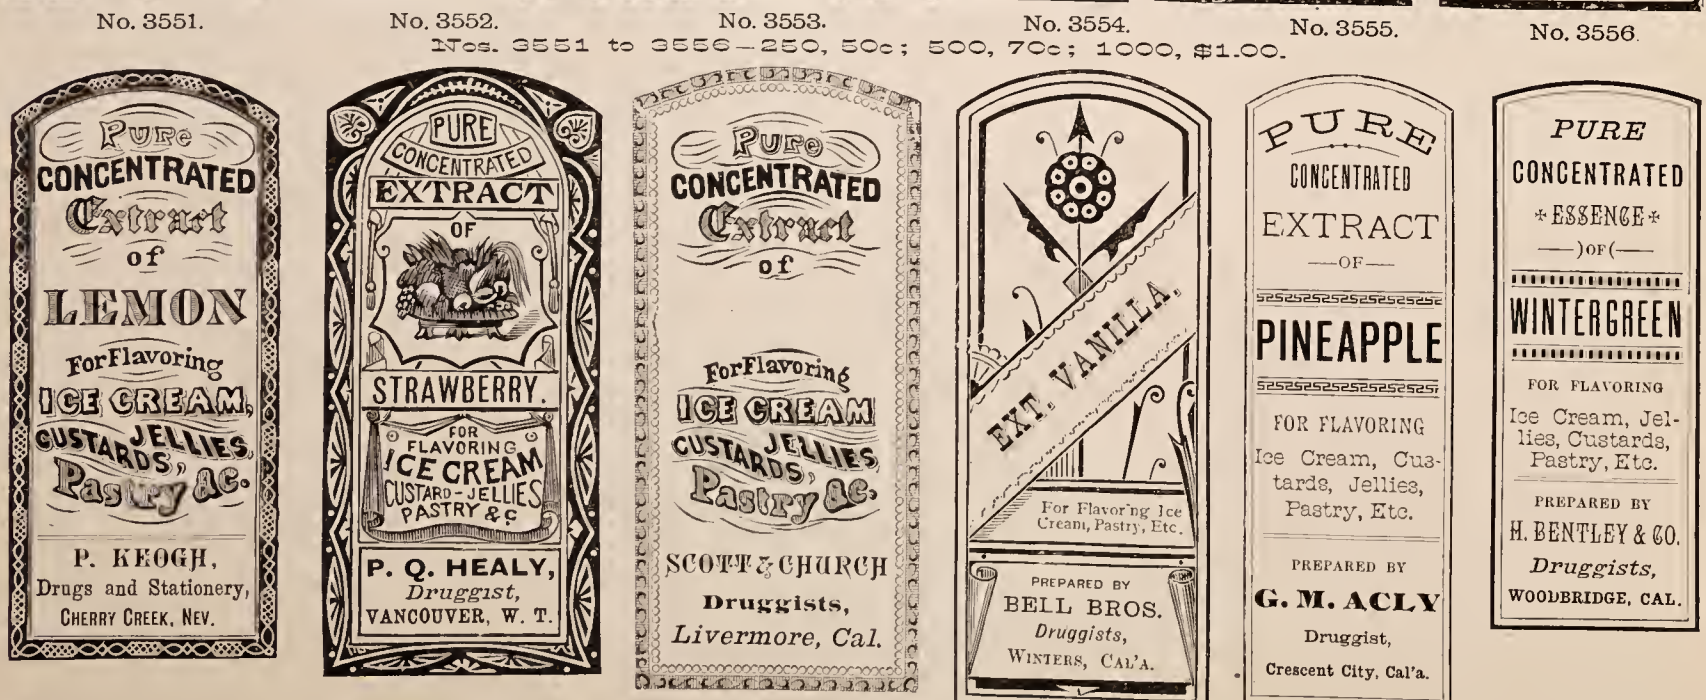 No. 3551.
No. 3552.
No. 3553.
No. 3554.
No. 3555.
No. 3556.
Nos. 3551 to 3556—250, 50c; 500, 70c; 1000, $1.00.
Pure
CONCENTRATED
Extract
of
LEMON
For Flavoring
ICE CREAM,
CUSTARDS, JELLIES,
Pastry &c.
P. KEOGH,
Drugs and Stationery,
CHERRY CREEK, NEV.
PURE
CONCENTRATED
EXTRACT
OF
STRAWBERRY.
FOR
FLAVORING
ICE CREAM
CUSTARD-JELLIES
PASTRY & C
P. Q. HEALY,
Druggist,
VANCOUVER, W. T.
Pure
CONCENTRATED
Extract
of
For Flavoring
ICE CREAM
CUSTARDS, JELLIES,
Pastry &c.
SCOTT & CHURCH
Druggists,
Livermore, Cal.
EXT. VANILLA.
For Flavor'ng Ice
Cream, Pastry, Etc.
PREPARED BY
BELL BROS.
Druggists,
WINTERS, CAL'A.
PURE
CONCENTRATED
EXTRACT
—OF—
PINEAPPLE
FOR FLAVORING
Ice Cream, Cus-
tards, Jellies,
Pastry, Etc.
PREPARED BY
G. M. ACLY
Druggist,
Crescent City, Cal'a.
PURE
CONCENTRATED
ESSENCE
—)OF(—
WINTERGREEN
FOR FLAVORING
Ice Cream, Jel-
lies, Custards,
Pastry, Etc.
PREPARED BY
H. BENTLEY & CO.
Druggists,
WOODBRIDGE, CAL.